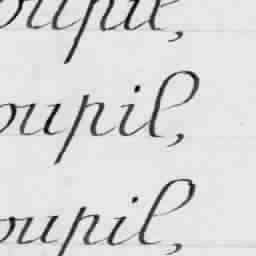 oupil,
oupil,
oupil,